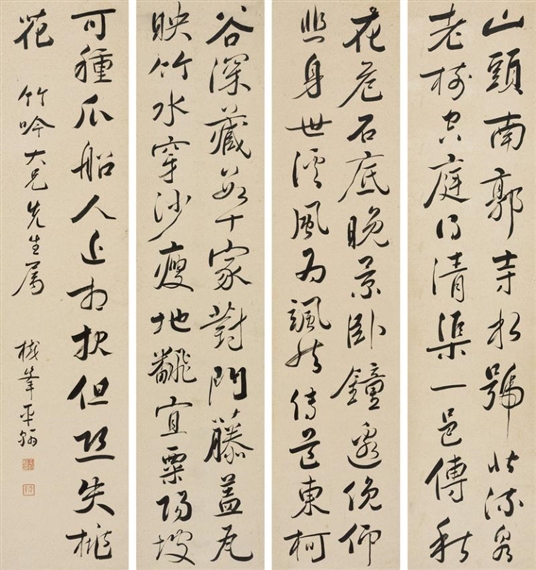 山頭南郭寺水號北流泉
老樹空庭得清渠一邑傳秋
花危石底晚景臥鐘邊俛仰
悲身世溪風為颯然傳道東柯
谷深藏數十家對門藤蓋瓦
映竹水穿沙瘦地飜宜粟陽坡
可種瓜船人近相報但恐失桃
花 竹吟大兄先生属 樾峯平翰